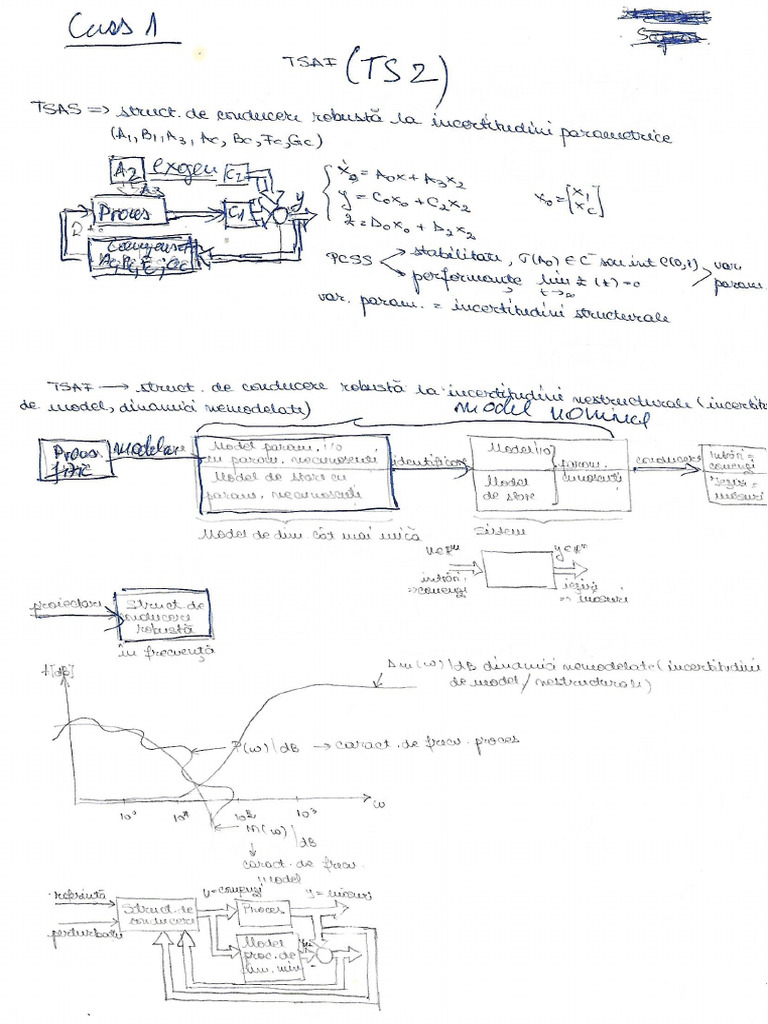 Curs 1
TSAF (TS2)
TSAS => struct. de conducere robustă la incertitudini parametrice
(A1, B1, A3, Ac, Bc, Fc, Gc)
A2 exogen C2
A3
Proces C1 y
Compensat
Ac, Bc, Fc, Gc
ẋ0 = A0x + A3x2
y = C0x0 + C2x2
z = D0x0 + D2x2
x0 = [x1 xc]
PCSS
stabilitate, σ(A0) ∈ C⁻ sau int C(0,1)
performanțe lim z(t) = 0
t→∞
var. param.
var. param. = incertitudini structurale
TSAF → struct. de conducere robustă la incertitudini nestructurale (incertit
de model, dinamici nemodelate)
model nominal
Proces fizic
modelare
Model param. I/O
cu param. necunoscuți
Model de stare cu
param. necunoscuți
identificare
Model I/O
Model
de stare
param.
cunoscuți
conducere
Intrări =
comenzi
Ieșiri =
măsuri
Model de dim. cât mai mică
Sistem
intrări
=> comenzi
ieșiri
=> măsuri
proiectare
Struct. de
conducere
robustă
în frecvență
A[dB]
Δm(ω)|dB dinamici nemodelate (incertitudini
de model / nestructurale)
P(ω)|dB → caract. de frecv. proces
10⁰ 10¹ 10² 10³ ω
M(ω)|dB
caract. de frecv.
model
referință
perturbații
Struct. de
conducere
u=comenzi
Proces
y=măsuri
Model
proc. de
dim. min